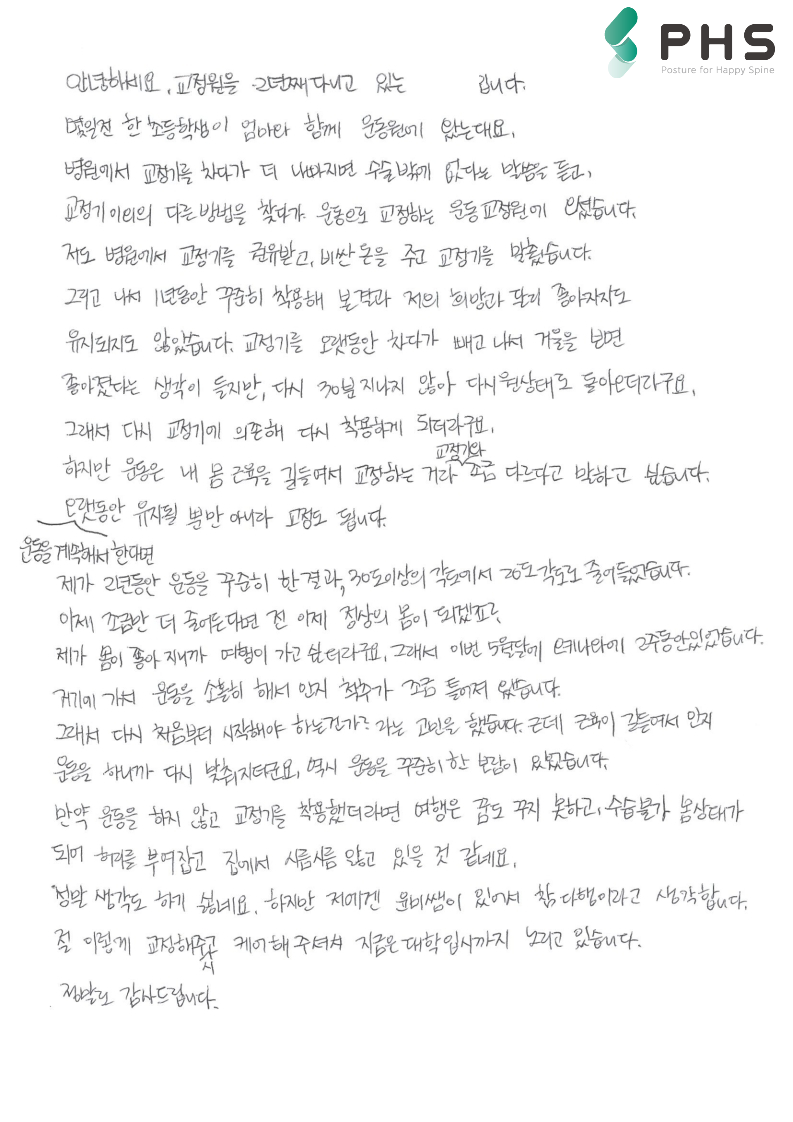 PHS
Posture for Happy Spine
안녕하세요, 교정원을 2년째 다니고 있는 입니다.
몇일전 한 초등학생이 엄마와 함께 운동원에 왔는대요,
병원에서 교정기를 차다가 더 나빠지면 수술밖에 없다는 말씀을 듣고,
교정기 이외의 다른 방법을 찾다가 운동으로 교정하는 운동교정원에 오셨습니다.
저도 병원에서 교정기를 권유받고, 비싼 돈을 주고 교정기를 맞췄습니다.
그리고 나서 1년동안 꾸준히 착용해 본 결과 저의 희망과 달리 좋아지지도
유지되지도 않았습니다. 교정기를 오랫동안 차다가 빼고 나서 거울을 보면
좋아졌다는 생각이 들지만, 다시 30분 지나지 않아 다시 원상태로 돌아오더라구요,
그래서 다시 교정기에 의존해 다시 착용하게 되더라구요,
하지만 운동은 내 몸 근육을 길들여서 교정하는 거라 교정기와 조금 다르다고 말하고 싶습니다.
오랫동안 유지될 뿐만 아니라 교정도 됩니다.
운동을 계속해서 한다면
제가 2년동안 운동을 꾸준히 한 결과, 30도이상의 각도에서 20도 각도로 줄어들었습니다.
이제 조금만 더 줄어든다면 전 이제 정상의 몸이 되겠죠?
제가 몸이 좋아 지니까 여행이 가고 싶더라구요, 그래서 이번 5월달에 오키나와에 2주동안있었습니다.
거기에 가서 운동을 소홀히 해서 인지 척추가 조금 틀어져 있었습니다.
그래서 다시 처음부터 시작해야 하는건가? 라는 고민을 했습니다. 근데 근육이 길들여서 인지
운동을 하니까 다시 맞춰지더군요, 역시 운동을 꾸준히 한 보람이 있었습니다.
만약 운동을 하지 않고 교정기를 착용했더라면 여행은 꿈도 꾸지 못하고, 수습불가 몸상태가
되어 허리를 부여잡고 집에서 시름시름 앓고 있을 것 같네요,
정말 생각도 하기 싫네요, 하지만 저에겐 윤비쌤이 있어서 참 다행이라고 생각합니다.
절 이렇게 교정해주고 케어해 주셔서 지금은 대학입시까지 노리고 있습니다.
시
정말로 감사드립니다.